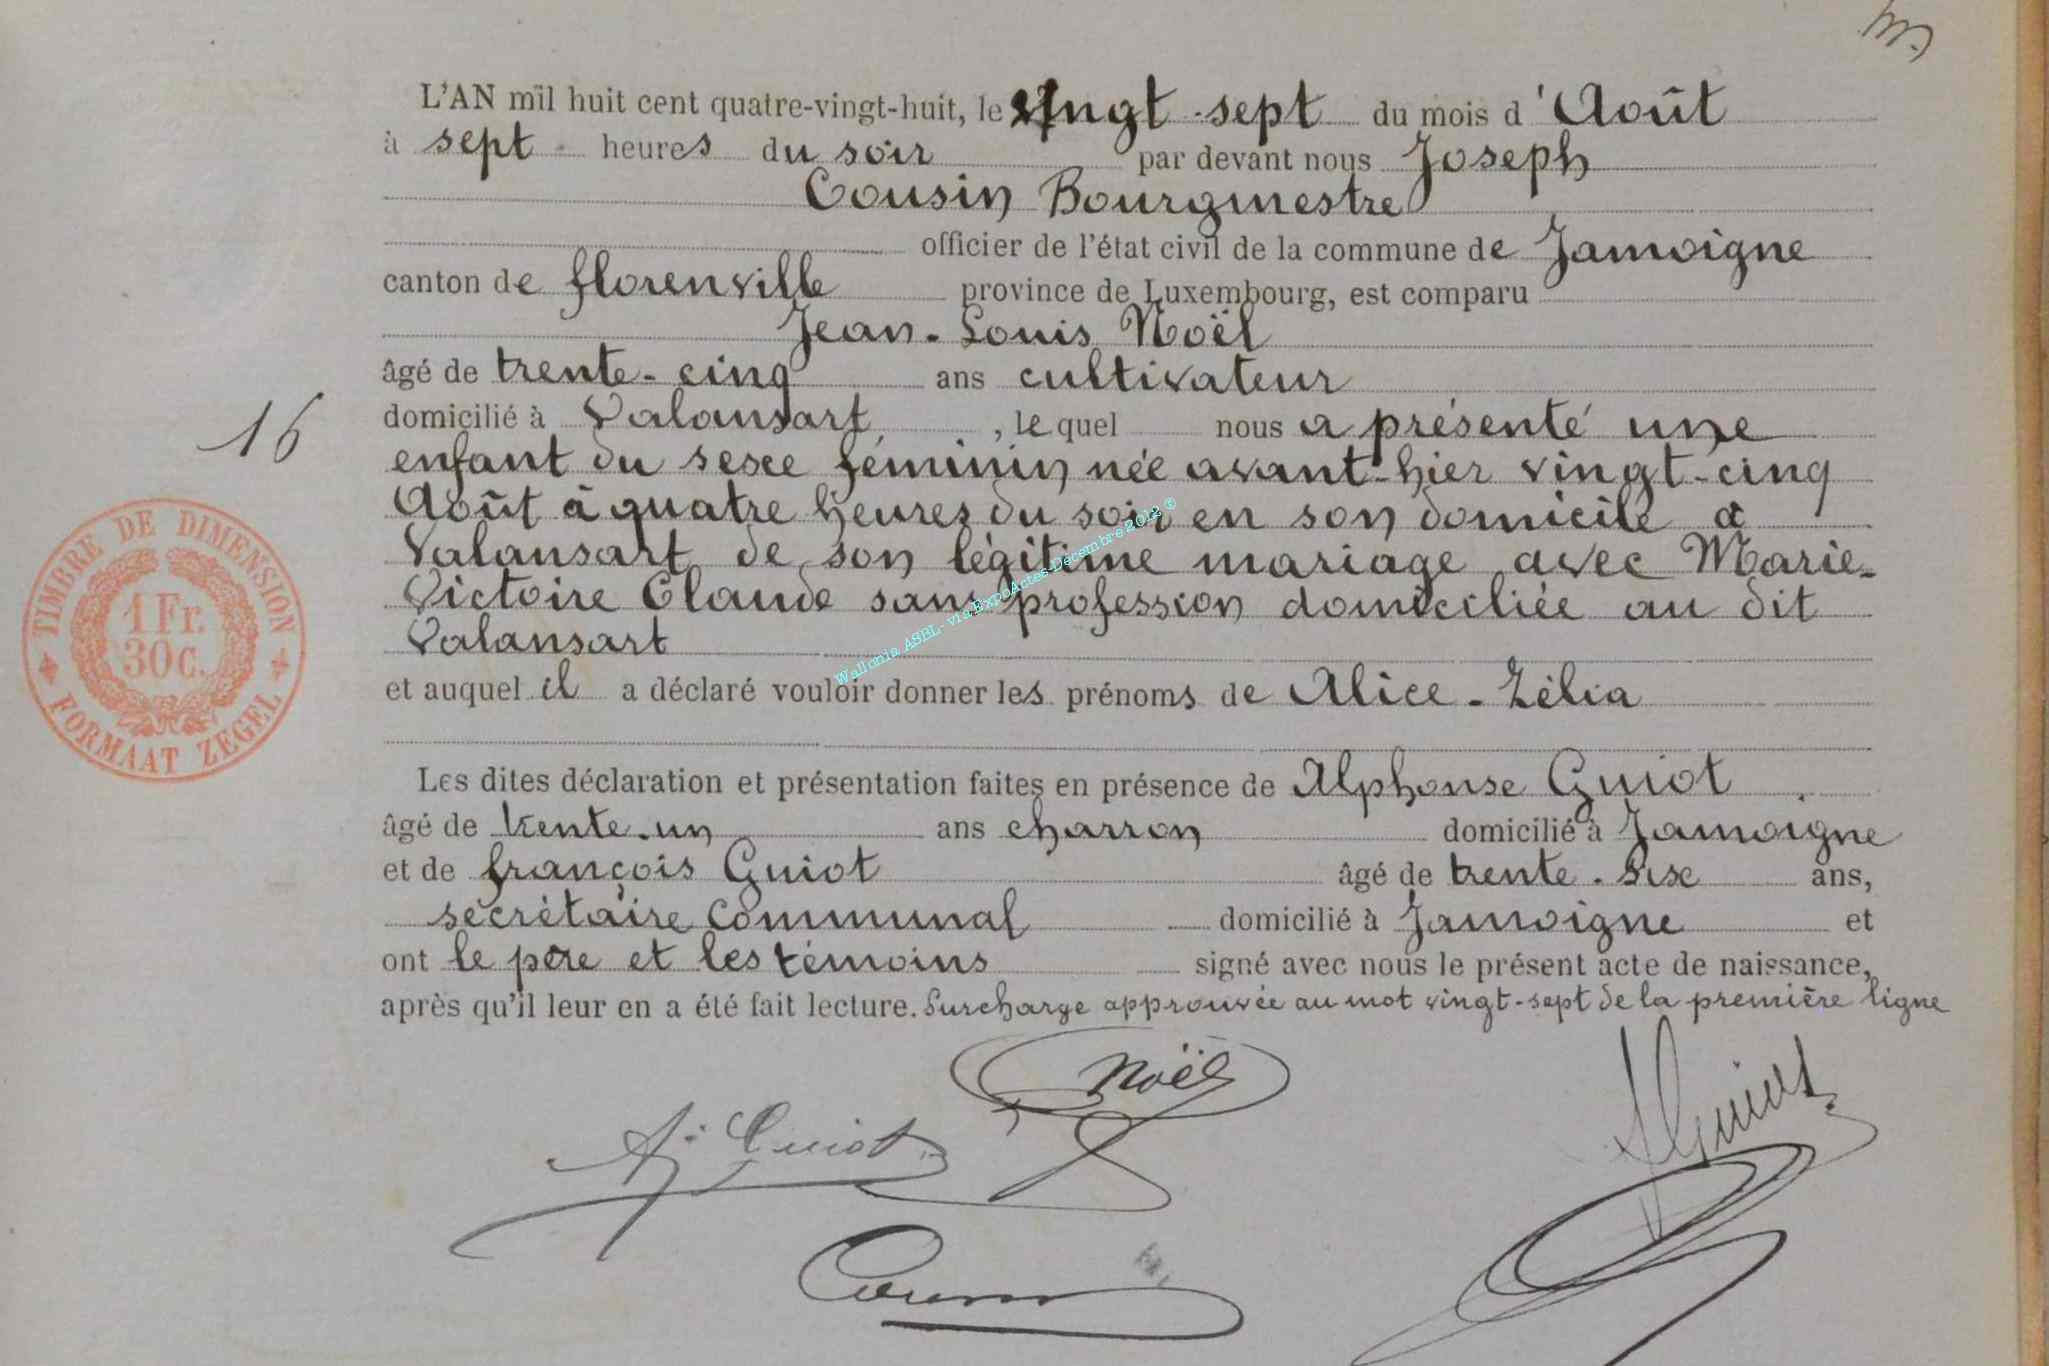 L'AN mil huit cent quatre-vingt-huit, le vingt-sept du mois d'Août
à sept heures du soir par devant nous Joseph
Cousin Bourgmestre
officier de l'état civil de la commune de Jamoigne
canton de florenville province de Luxembourg, est comparu
Jean-Louis Noël
âgé de trente-cinq ans cultivateur
domicilié à Valansart, lequel nous a présenté une
16
enfant du sexe féminin née avant-hier vingt-cinq
Août à quatre heures du soir en son domicile à
Valansart de son légitime mariage avec Marie-
Victoire Claude sans profession domiciliée au dit
Valansart
et auquel il a déclaré vouloir donner les prénoms de Alice-Zélia
Les dites déclaration et présentation faites en présence de Alphonse Guiot
âgé de trente-un ans charron domicilié à Jamoigne
et de françois Guiot âgé de trente-six ans,
secrétaire communal domicilié à Jamoigne et
ont le père et les témoins signé avec nous le présent acte de naissance,
après qu'il leur en a été fait lecture. Surcharge approuvée au mot vingt-sept de la première ligne
Noël
Guiot
A Guiot
Cousin
TIMBRE DE DIMENSION
1 Fr.
30 C.
FORMAAT ZEGEL
Wallonia ASBL - via ExpoActes-Décembre 2012 ©